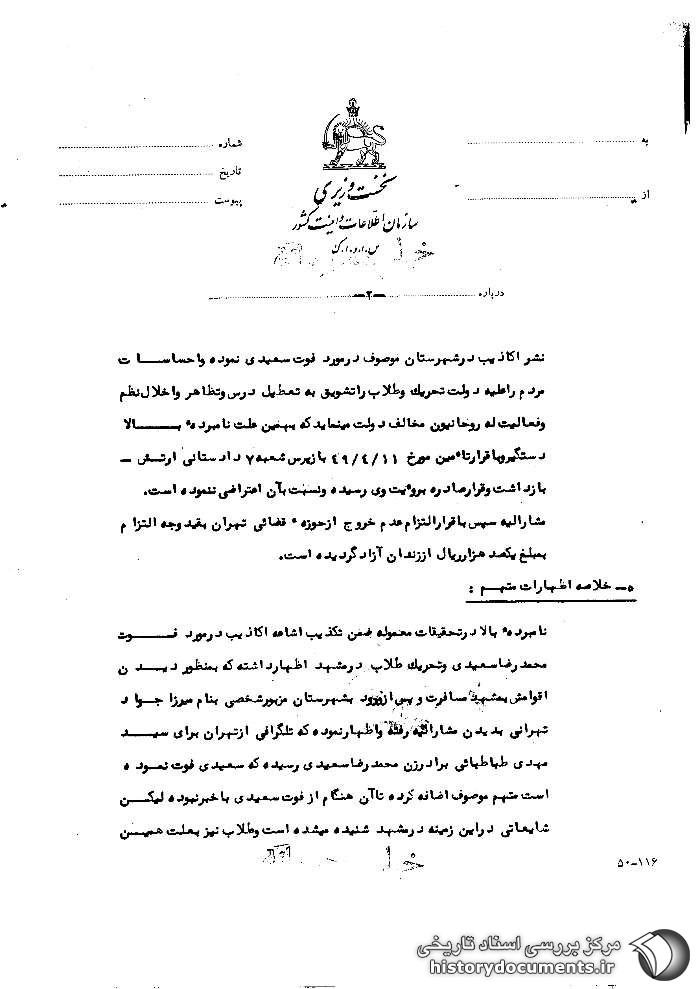 به
از
شماره
تاریخ
پیوست
نخست وزیری
سازمان اطلاعات و امنیت کشور
س.ا.و.ا.ک
درباره -۲-
نشر اکاذیب در شهرستان موصوف در مورد فوت سعیدی نموده و احساسات
مردم را علیه دولت تحریک و طلاب را تشویق به تعطیل درس و تظاهر و اخلال نظم
و فعالیت له روحانیون مخالف دولت مینماید که بهمین علت نامبرده بالا
دستگیر و با قرار تامین مورخ ۴۹/۴/۱۱ بازپرس شعبه ۷ دادستانی ارتش -
بازداشت و قرار صادره برویت وی رسیده و نسبت بآن اعتراضی ننموده است.
مشارالیه سپس با قرار التزام عدم خروج از حوزه قضائی تهران بقید وجه التزام
بمبلغ یکصد هزار ریال از زندان آزاد گردیده است.
۵- خلاصه اظهارات متهم :
نامبرده بالا در تحقیقات معموله ضمن تکذیب اشاعه اکاذیب در مورد فوت
محمد رضا سعیدی و تحریک طلاب در مشهد اظهار داشته که بمنظور دیدن
اقوامش بمشهد مسافرت و پس از ورود بشهرستان مزبور شخصی بنام میرزا جواد
تهرانی بدیدن مشارالیه رفته و اظهار نموده که تلگرافی از تهران برای سید
مهدی طباطبائی برادرزن محمد رضا سعیدی رسیده که سعیدی فوت نموده
است متهم موصوف اضافه کرده تا آن هنگام از فوت سعیدی با خبر نبوده لیکن
شایعاتی در این زمینه در مشهد شنیده میشده است و طلاب نیز بعلت همین
۵۰-۱۱۶
مرکز بررسی اسناد تاریخی
historydocuments.ir